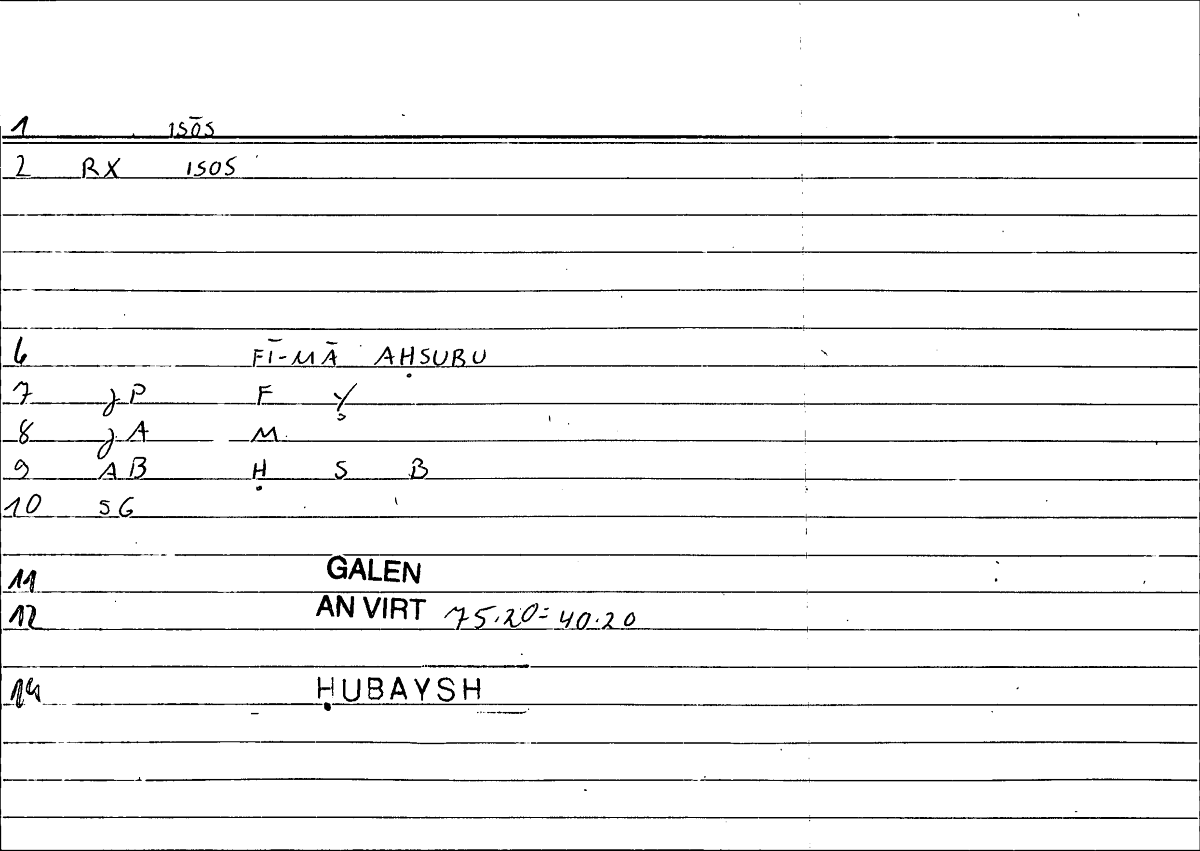 1 ISŌS
2 RX ISOS
6 FĪ-MĀ AḤSUBU
7 JP F Y
8 JA M
9 AB Ḥ S B
10 SG
11 GALEN
12 AN VIRT 75.20=40.20
14 ḤUBAYSH